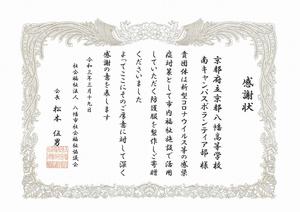 感謝状
京都府立京都八幡高等学校
南キャンパスボランティア部 様
貴団体は新型コロナウイルス等の感染
症対策として市内福祉施設で活用
していただく防護服を製作しご寄贈
くださいました
よってここにそのご厚志に対して深く
感謝の意を表します
令和三年三月十九日
社会福祉法人 八幡市社会福祉協議会
会長 松本 伍男